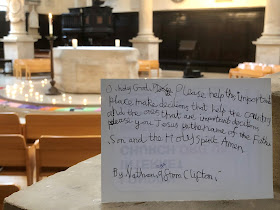 O holy God, Please help this important
place make decisions that help the country
and the ones that are important decisions
please you Jesus in the name of the Father
Son and the Holy Spirit Amen
CHURCH
By Nathan A from Clifton,